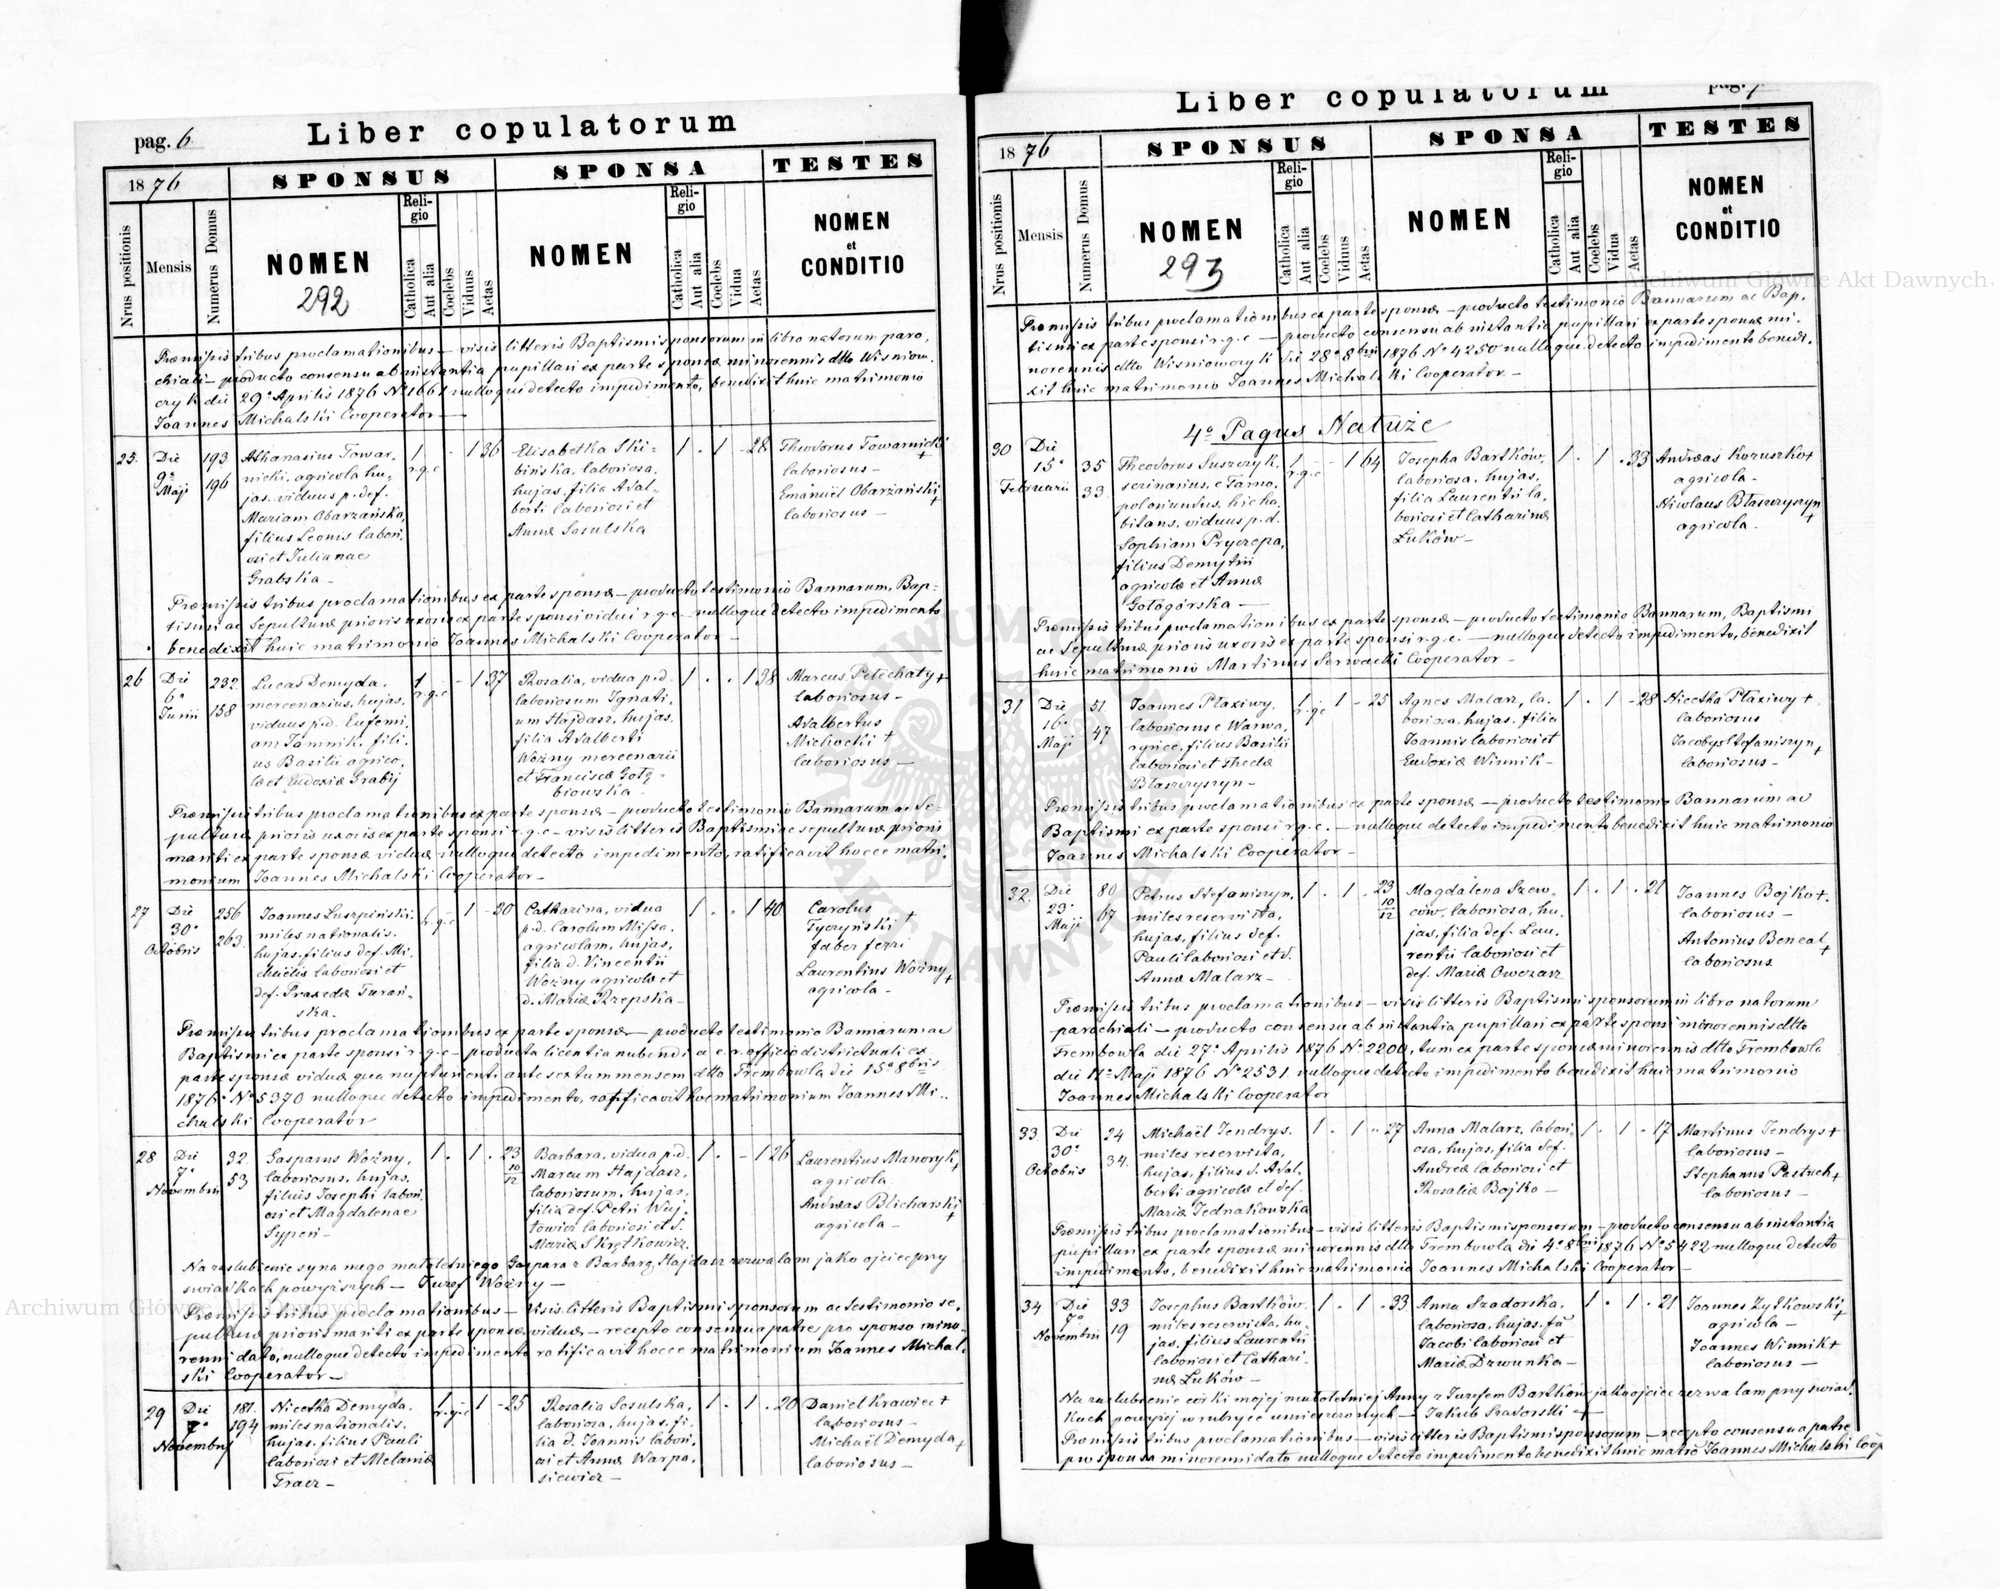 pag. 6
Liber copulatorum
1876
SPONSUS
SPONSA
TESTES
Nrus positionis
Mensis
Numerus Domus
NOMEN
292
Religio
Catholica
Aut alia
Coelebs
Viduus
Aetas
NOMEN
Religio
Catholica
Aut alia
Coelebs
Vidua
Aetas
NOMEN
et
CONDITIO
Praemissis tribus proclamationibus – visis litteris Baptismi sponsorum in libro natorum paro,
chiali – producto consensu ab instantia pupillari ex parte sponsae minorennis dtto Wisniow.
czyk dii 29a Aprilis 1876 No 1661 nulloque detecto impedimento, benedixit huic matrimonio
Joannes Michalski Cooperator –
25. Die 9a Maji
193
196
Athanasius Towar-
nicki, agricola hu-
jas, viduus p. def.
Mariam Obarzańska,
filius Leonis labori,
osi et Julianae
Grabska –
1 r.g.c - - 1 36
Elisabetha Ski-
bińska, laboriosa,
hujas, filia Adal-
berti laboriosi et
Annae Sosulska
1 . 1 - 28
Theodorus Towarnicki +
laboriosus –
Emanuel Obarzański +
laboriosus –
Praemissis tribus proclamationibus ex parte sponsae – producto testimonio Bannarum, Bap-
tismi ac Sepulturae prioris uxoris ex parte sponsi vidui r.g.c – nulloque detecto impedimento
benedixit huic matrimonio Joannes Michalski Cooperator –
26 Die 6a Junii
232.
158
Lucas Demyda,
mercenarius, hujas,
viduus p.d. Eufemi,
am Tamnik, fili,
us Basilii agrico,
lae et Eudoxiae Grabij
1 r.g.c - - 1 37
Rosalia, vidua p.d.
laboriosum Ignati,
um Hajdasz, hujas,
filia Adalberti
Woźny mercenarii
et Franciscae Gołę-
biowska –
1 . . 1 38
Marcus Petechaty +
laboriosus –
Adalbertus
Michocki +
laboriosus –
Praemissis tribus proclamationibus ex parte sponsae – producto testimonio Bannarum ac Se-
pulturae prioris uxoris ex parte sponsi r.g.c – visis litteris Baptismi ac sepulturae prioris
mariti ex parte sponsae viduae nulloque detecto impedimento, ratificavit hocce matri,
monium Joannes Michalski Cooperator –
27 Die 30a Octobris
256
263.
Joannes Luszpiński,
miles nationalis,
hujas, filius def. Mi,
chaëlis laboriosi et
def. Praxedae Turań-
ska –
1 r.g.c - 1 - 30
Catharina, vidua
p.d. Carolum Missa,
agricolam, hujas,
filia d. Vincentii
Woźny agricolae et
d. Mariae Rzepska –
1 . . 1 40
Carolus
Tyczyński +
faber ferri
Laurentius Woźny +
agricola –
Praemissis tribus proclamationibus ex parte sponsae – producto testimonio Bannarum ac
Baptismi ex parte sponsi r.g.c – producta licentia nubendi a c.r. officio districtuali ex
parte sponsae viduae qua nupturienti ante sextum mensem dtto Trembowla die 15a 8bris
1876 No 5370 nulloque detecto impedimento, ratificavit hoc matrimonium Joannes Mi-
chalski Cooperator
28 Die 7a Novembris
32.
53
Gasparus Woźny,
laboriosus, hujas,
filius Josephi labori,
osi et Magdalenae
Sypeń –
1 . 1 . 23 10/12
Barbara, vidua p.d.
Marcum Hajdasz,
laboriosum, hujas,
filia def. Petri Wój-
towicz laboriosi et d.
Mariae Skrętkowicz.
1 . - 1 26
Laurentius Manoryk +
agricola
Andreas Blicharski +
agricola –
Na zaślubienie syna mego małoletniego Gaspara z Barbarą Hajdasz zezwalam jako ojciec przy
swiadkach powyższych – Jozef Woźny –
Praemissis tribus proclamationibus – visis litteris Baptismi sponsorum ac testimonio se,
pulturae prioris mariti ex parte sponsae viduae – recepto consensu a patre pro sponso mino-
renni dato, nulloque detecto impedimento ratificavit hocce matrimonium Joannes Michal,
ski Cooperator –
29 Die 7a Novembris
181.
194
Nicetha Demyda,
miles nationalis,
hujas, filius Pauli
laboriosi et Melaniae
Tracz –
1 r.g.c 1 - 25
Rosalia Sosulska,
laboriosa, hujas, fi-
lia d. Joannis labori,
osi et Annae Warpa,
siewicz –
1 . 1 . 20
Daniel Krawiec +
laboriosus –
Michaël Demyda +
laboriosus –
Liber copulatorum
pag. 7
1876
SPONSUS
SPONSA
TESTES
Nrus positionis
Mensis
Numerus Domus
NOMEN
293
Religio
Catholica
Aut alia
Coelebs
Viduus
Aetas
NOMEN
Religio
Catholica
Aut alia
Coelebs
Vidua
Aetas
NOMEN
et
CONDITIO
Praemissis tribus proclamationibus ex parte sponsae – producto testimonio Bannarum ac Bap,
tismi ex parte sponsi r.g.c – producto consensu ab instantia pupillari ex parte sponsae mi,
norennis dtto Wisniowczyk die 28a 8bris 1876 No 4250 nulloque detecto impedimento benedi,
xit huic matrimonio Joannes Michalski Cooperator –
4o Pagus Nałuże
30 Die 15a Februarii
35
33.
Theodorus Suszczyk,
scriniarius, e Tarno,
poloniundus, hic ha,
bitans, viduus p.d.
Sophiam Pryczepa,
filius Demytrii
agricolae et Annae
Gołogórska –
1 r.g.c - - 1 64
Josepha Bartków,
laboriosa, hujas,
filia Laurentii la,
boriosi et Catharinae
Łuków –
1 . 1 . 33
Andreas Kozuszko +
agricola –
Nicolaus Błaszczyszyn +
agricola –
Praemissis tribus proclamationibus ex parte sponsae – producto testimonio Bannarum, Baptismi
ac Sepulturae prioris uxoris ex parte sponsi r.g.c. – nulloque detecto impedimento, benedixit
huic matrimonio Martinus Serwacki Cooperator –
31 Die 16a Maji
51
47
Joannes Płaxiwy,
laboriosus e Warwa,
ryńce, filius Basilii
laboriosi et Theclae
Błaszczyszyn –
1 r.g.c 1 - 25
Agnes Malarz, la-
boriosa, hujas, filia
Joannis laboriosi et
Eudoxiae Winnik –
1 . 1 - 28
Nicetha Płaxiwy +
laboriosus
Jacobus Stefaniszyn +
laboriosus –
Praemissis tribus proclamationibus ex parte sponsae – producto testimonio Bannarum ac
Baptismi ex parte sponsi r.g.c. – nulloque detecto impedimento benedixit huic matrimonio
Joannes Michalski Cooperator –
32. Die 23a Maji
80
67
Petrus Stefaniszyn,
miles reservista,
hujas, filius def.
Pauli laboriosi et d.
Annae Malarz –
1 . 1 . 23 10/12
Magdalena Szew-
ców, laboriosa, hu,
jas, filia def. Lau,
rentii laboriosi et
def. Mariae Owczarz
1 . 1 . 21
Joannes Bojko +
laboriosus –
Antonius Bencal +
laboriosus
Praemissis tribus proclamationibus – visis litteris Baptismi sponsorum in libro natorum
parochiali – producto consensu ab instantia pupillari ex parte sponsi minorennis dtto
Trembowla die 27a Aprilis 1876 No 2200, tum ex parte sponsae minorennis dtto Trembowla
die 11a Maji 1876 No 2531 nulloque detecto impedimento benedixit huic matrimonio
Joannes Michalski Cooperator
33. Die 30a Octobris
24
34.
Michaël Jendrys,
miles reservista,
hujas, filius d. Adal,
berti agricolae et def.
Mariae Jednakowska
1 . 1 . 27
Anna Malarz, labori,
osa, hujas, filia def.
Andreae laboriosi et
Rosaliae Bojko –
1 . 1 . 17
Martinus Jendrys +
laboriosus –
Stephanus Pastuch +
laboriosus –
Praemissis tribus proclamationibus – visis litteris Baptismi sponsorum – producto consensu ab instantia
pupillari ex parte sponsae minorennis dtto Trembowla die 4a 8bris 1876 No 5422 nulloque detecto
impedimento, benedixit huic matrimonio Joannes Michalski Cooperator –
34 Die 7a Novembris
33
19
Josephus Bartków,
miles reservista, hu,
jas, filius Laurentii
laboriosi et Cathari-
nae Łuków –
1 . 1 . 33
Anna Szadorska,
laboriosa, hujas, fa
Jacobi laboriosi et
Mariae Dzwunka –
1 . 1 . 21
Joannes Żyłkowski +
agricola –
Joannes Winnik +
laboriosus –
Na zaslubienie córki mojej małoletniej Anny z Jozefem Bartków jako ojciec zezwalam przy swiad,
kach powyżej w rubryce umieszczonych – Jakub Szadorski +
Praemissis tribus proclamationibus – visis litteris Baptismi sponsorum – recepto consensu a patre
pro sponsa minorenni dato nulloque detecto impedimento benedixit huic matrio Joannes Michalski Coop
Archiwum Główne Akt Dawnych
Archiwum Główne Akt Dawnych